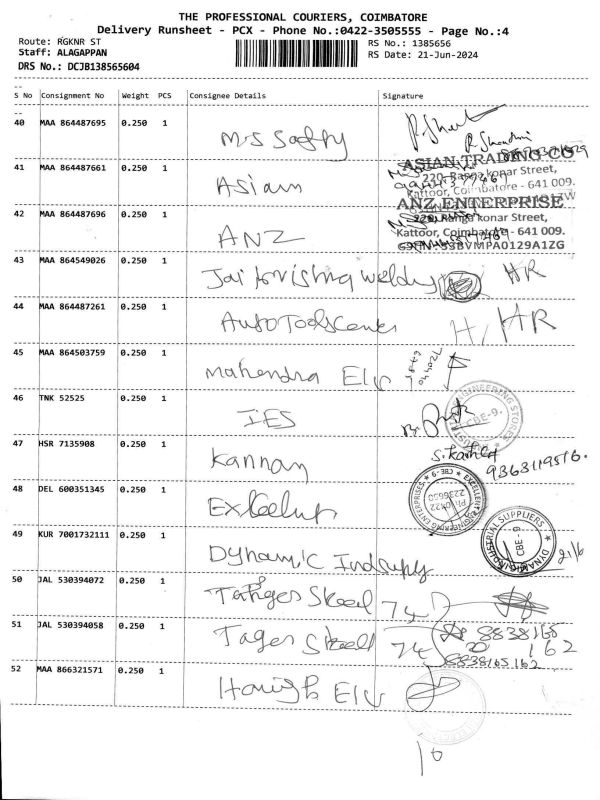 THE PROFESSIONAL COURIERS, COIMBATORE
Delivery Runsheet - PCX - Phone No.:0422-3505555 - Page No.:4
Route: RGKNR ST
RS No.: 1385656
Staff: ALAGAPPAN
RS Date: 21-Jun-2024
DRS No.: DCJB138565604
S No Consignment No Weight PCS Consignee Details Signature
40 MAA 864487695 0.250 1
41 MAA 864487661 0.250 1 Asian
ASIAN TRADING CO
220, Ranga konar Street,
Kattoor, Coimbatore - 641 009.
42 MAA 864487696 0.250 1 ANZ
ANZ ENTERPRISE
220, Ranga konar Street,
Kattoor, Coimbatore - 641 009.
43 MAA 864549026 0.250 1 HR
44 MAA 864487261 0.250 1 HR
45 MAA 864503759 0.250 1 Mahendra
46 TNK 52525 0.250 1 IES
ENGINEERING STORES
CBE-9.
47 HSR 7135908 0.250 1 Kannan
9363119516.
48 DEL 600351345 0.250 1
EXCELLENT ENGINEERING ENTERPRISES * CBE-9 *
Ph:0422
2236650
49 KUR 7001732111 0.250 1 Dynamic
DYNAMIC INDUSTRIAL SUPPLIERS
CBE - 9
21/6
50 JAL 530394072 0.250 1 74
51 JAL 530394058 0.250 1 74
8838165162
52 MAA 866321571 0.250 1